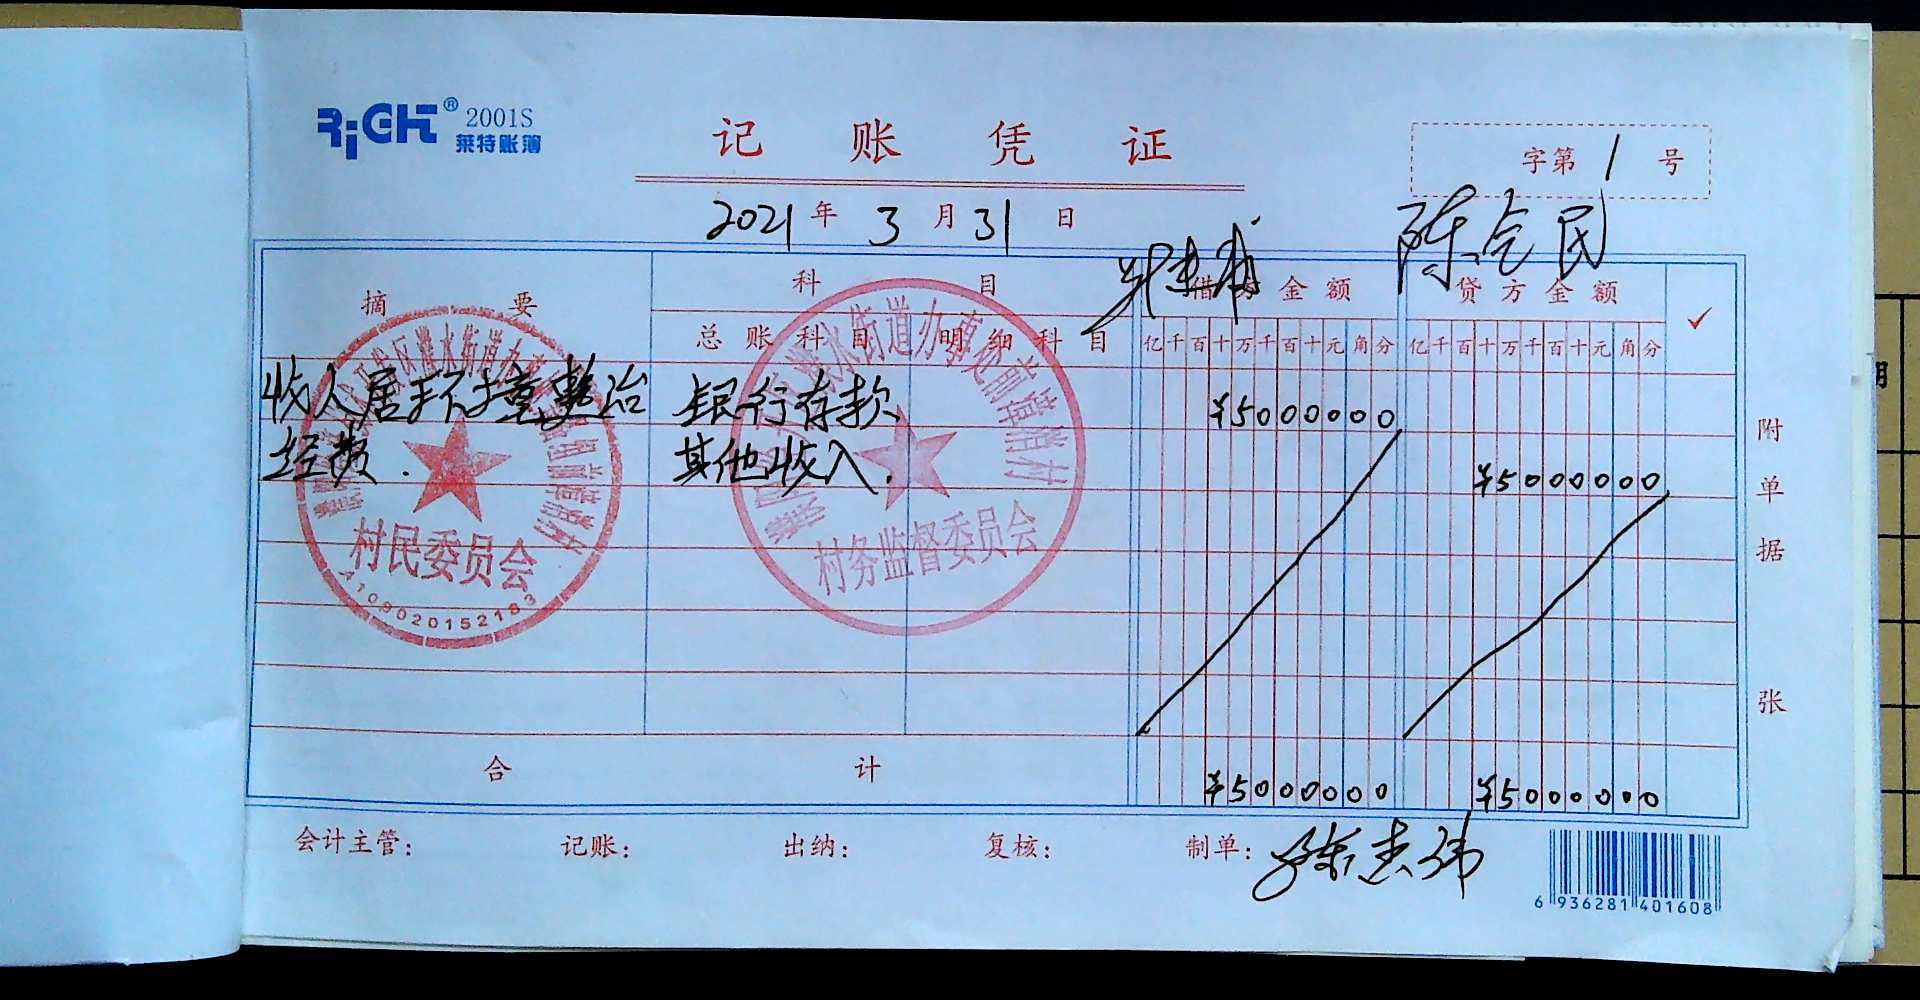 RiGHT® 2001S
莱特账簿
记账凭证
字第 1 号
2021 年 3 月 31 日
摘要
科目
借方金额
贷方金额
✓
总账科目
明细科目
亿千百十万千百十元角分
亿千百十万千百十元角分
收人居环境整治
经费.
银行存款
¥5000000
其他收入.
¥5000000
村民委员会
村务监督委员会
附单据 张
合计
¥5000000
¥5000000
会计主管:
记账:
出纳:
复核:
制单:
6 936281 401608